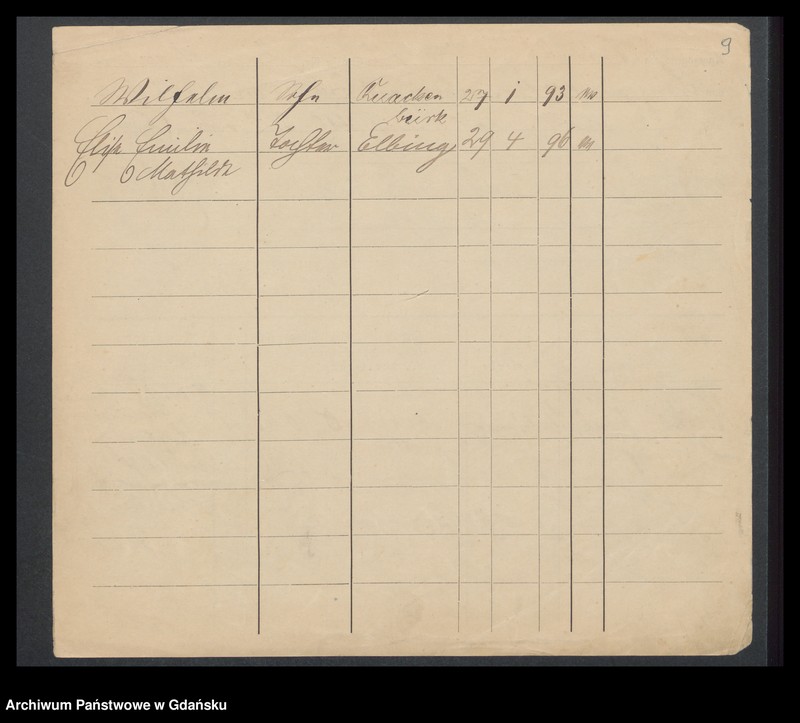 9
Wilhelm Sohn Quacken 27 1 93
brück
Elise Emilie Tochter Elbing 29 4 96
Mathilde
Archiwum Państwowe w Gdańsku